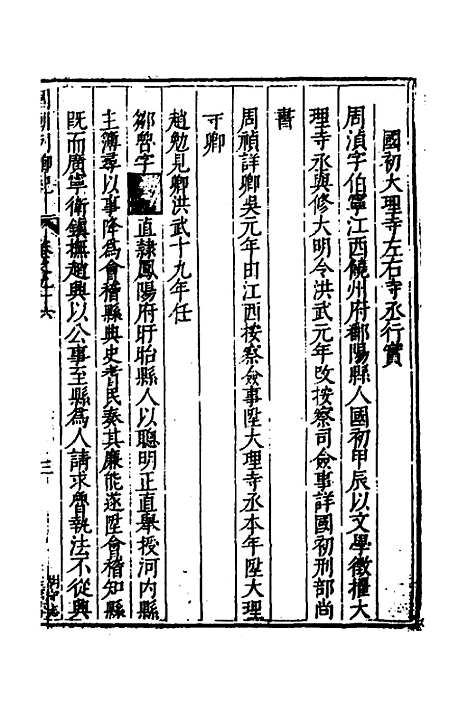 國初大理寺左右寺丞行實
周湞字伯寧江西饒州府鄱陽縣人國初甲辰以文學徵擢大
理寺丞與修大明令洪武元年改按察司僉事詳國初刑部尚
書
周禎詳卿吳元年由江西按察僉事陞大理寺丞本年陞大理
寺卿
趙勉見卿洪武十九年任
鄒魯字 直隸鳳陽府盱眙縣人以聰明正直舉授河內縣
主簿尋以事降為會稽縣典史耆民奏其廉能遂陞會稽知縣
既而廣寧衛鎮撫趙興以公事至縣為人請求魯執法不從興
國朝列卿紀 卷之九十六 三